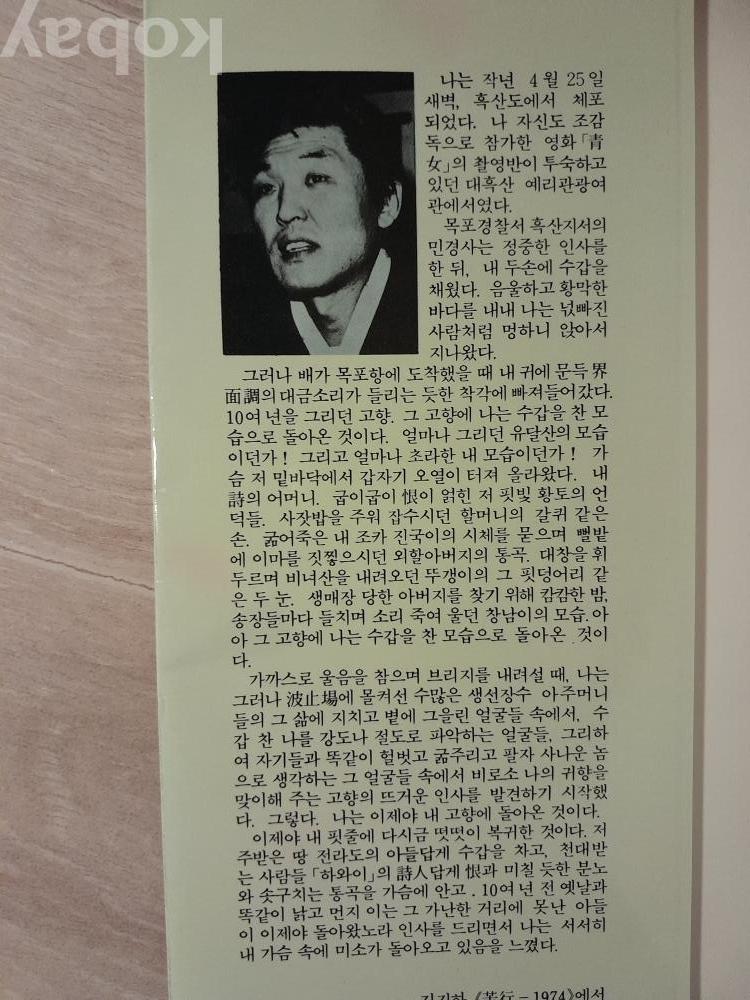 kobay
나는 작년 4월 25일
새벽, 흑산도에서 체포
되었다. 나 자신도 조감
독으로 참가한 영화「靑
女」의 촬영반이 투숙하고
있던 대흑산 예리관광여
관에서였다.
목포경찰서 흑산지서의
민경사는 정중한 인사를
한 뒤, 내 두손에 수갑을
채웠다. 음울하고 황막한
바다를 내내 나는 넋빠진
사람처럼 멍하니 앉아서
지나왔다.
그러나 배가 목포항에 도착했을 때 내 귀에 문득 界
面調의 대금소리가 들리는 듯한 착각에 빠져들어갔다.
10여 년을 그리던 고향. 그 고향에 나는 수갑을 찬 모
습으로 돌아온 것이다. 얼마나 그리던 유달산의 모습
이던가! 그리고 얼마나 초라한 내 모습이던가! 가
슴 저 밑바닥에서 갑자기 오열이 터져 올라왔다. 내
詩의 어머니. 굽이굽이 恨이 얽힌 저 핏빛 황토의 언
덕들. 사잣밥을 주워 잡수시던 할머니의 갈퀴 같은
손. 굶어죽은 내 조카 진국이의 시체를 묻으며 뻘밭
에 이마를 짓찧으시던 외할아버지의 통곡. 대창을 휘
두르며 비녀산을 내려오던 뚜갱이의 그 핏덩어리 같
은 두 눈. 생매장 당한 아버지를 찾기 위해 캄캄한 밤,
송장들마다 들치며 소리 죽여 울던 창남이의 모습. 아
아 그 고향에 나는 수갑을 찬 모습으로 돌아온 것이
다.
가까스로 울음을 참으며 브리지를 내려설 때, 나는
그러나 波止場에 몰켜선 수많은 생선장수 아주머니
들의 그 삶에 지치고 볕에 그을린 얼굴들 속에서, 수
갑 찬 나를 강도나 절도로 파악하는 얼굴들, 그리하
여 자기들과 똑같이 헐벗고 굶주리고 팔자 사나운 놈
으로 생각하는 그 얼굴들 속에서 비로소 나의 귀향을
맞이해 주는 고향의 뜨거운 인사를 발견하기 시작했
다. 그렇다. 나는 이제야 내 고향에 돌아온 것이다.
이제야 내 핏줄에 다시금 떳떳이 복귀한 것이다. 저
주받은 땅 전라도의 아들답게 수갑을 차고, 천대받
는 사람들「하와이」의 詩人답게 恨과 미칠 듯한 분노
와 솟구치는 통곡을 가슴에 안고. 10여 년 전 옛날과
똑같이 낡고 먼지 이는 그 가난한 거리에 못난 아들
이 이제야 돌아왔노라 인사를 드리면서 나는 서서히
내 가슴 속에 미소가 돌아오고 있음을 느꼈다.
김지하 《苦行-1974》에서